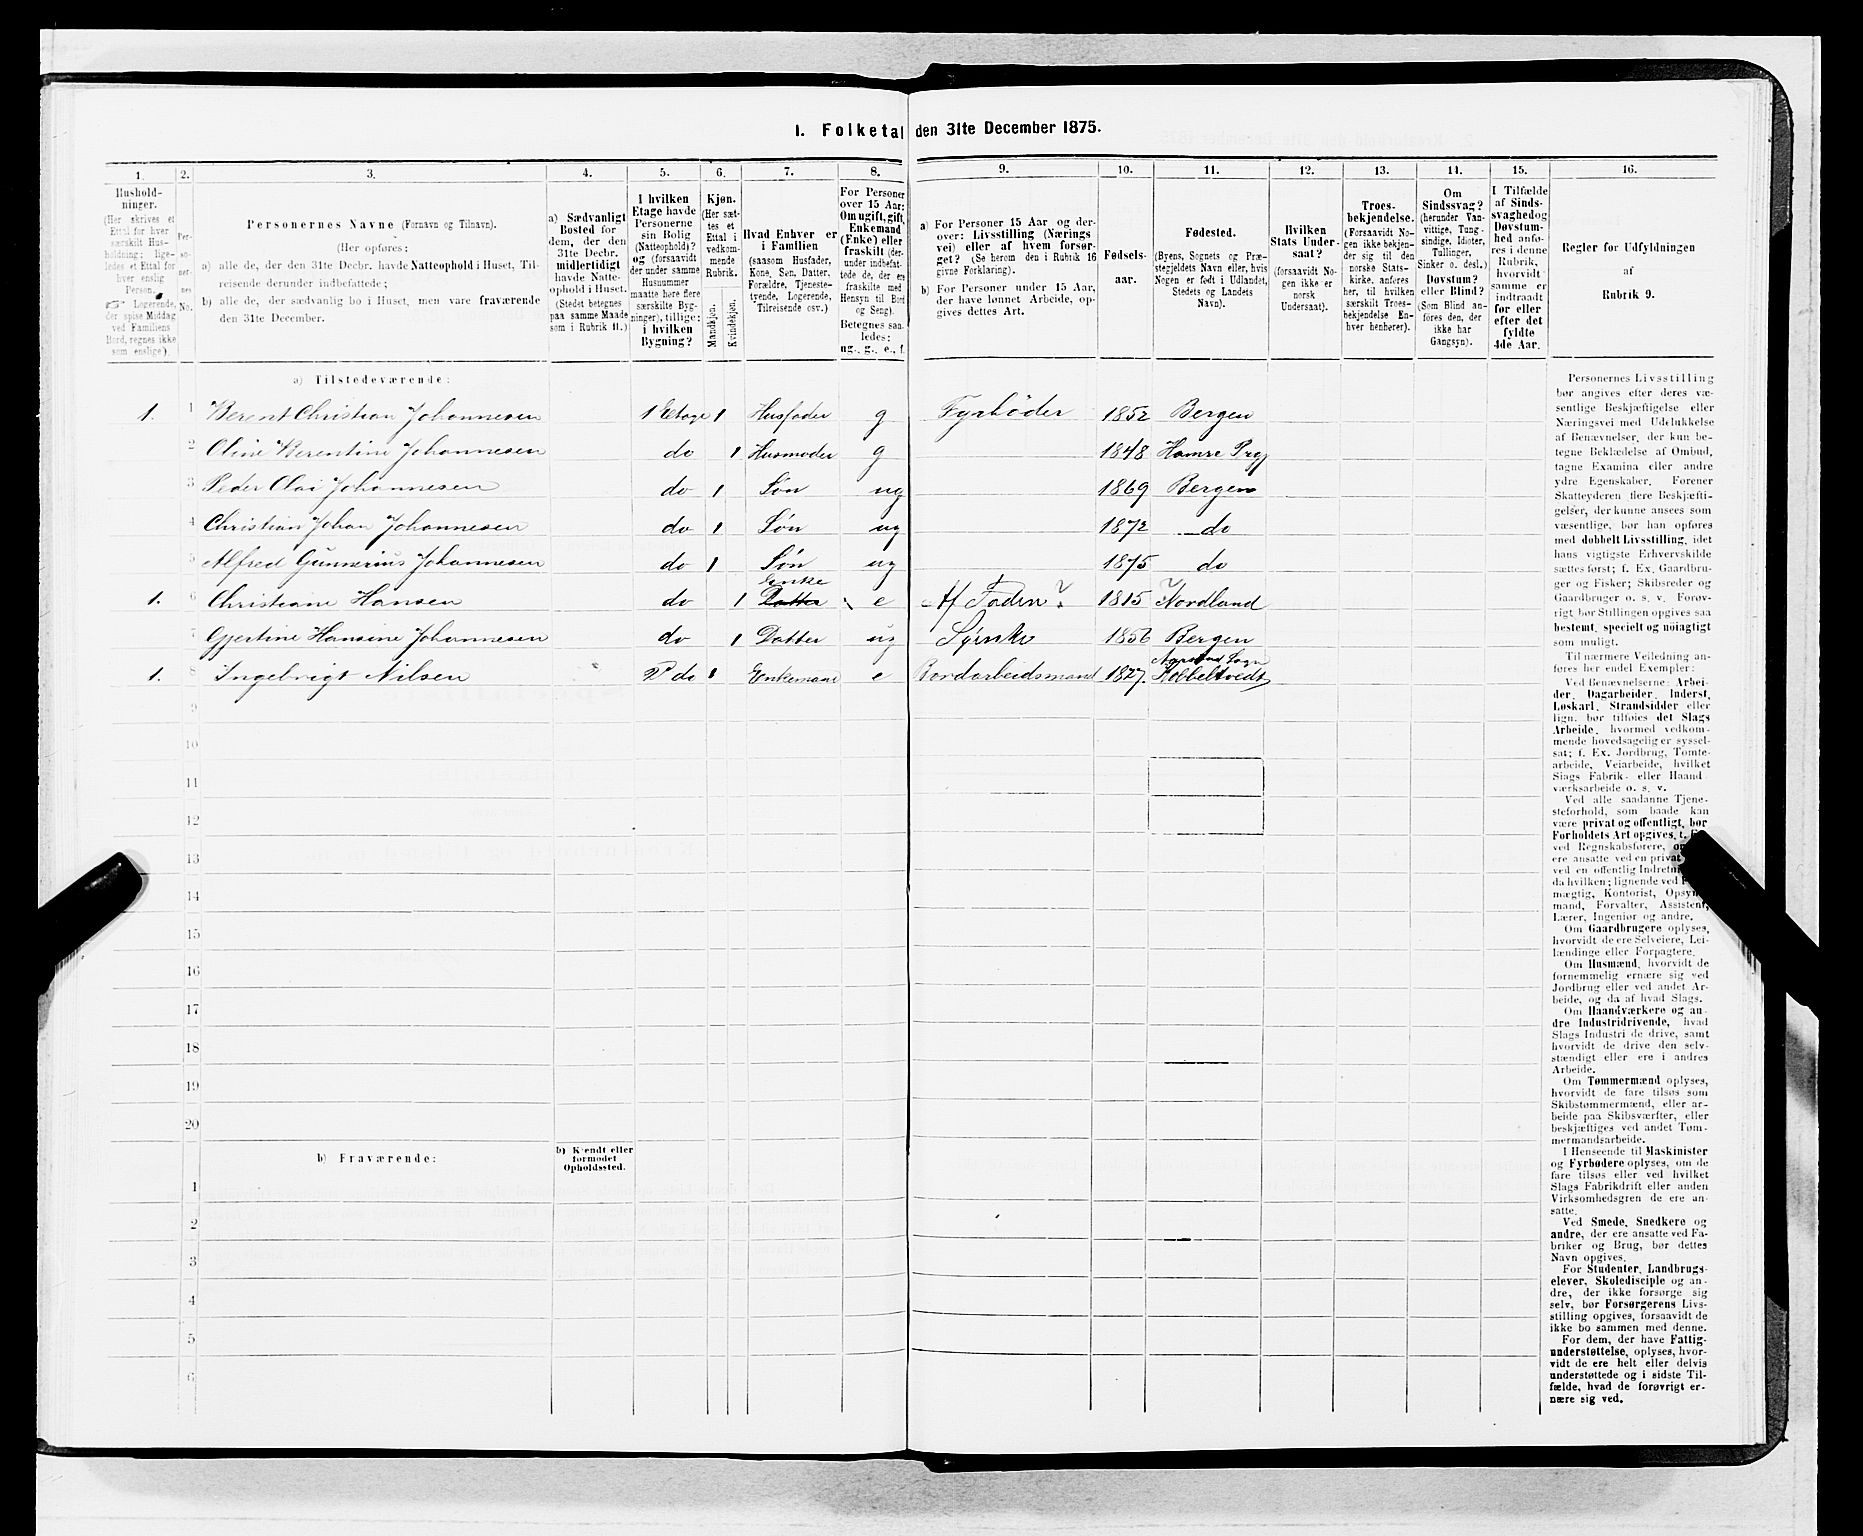 1. Folketal den 31te December 1875.
1.
Hushold-
ninger.
(Her skrives et
Ettal for hver
særskilt Hus-
holdning; lige-
ledes et Ettal for
hver enslig
Person.
Logerende,
der spise Middag
ved Familiens
Bord, regnes ikke
som enslige).
2.
Per-
so-
ner-
nes
No.
3.
Personernes Navne (Fornavn og Tilnavn).
(Her opføres:
a) alle de, der den 31te Decbr. havde Natteophold i Huset, Til-
reisende derunder indbefattede;
b) alle de, der sædvanlig bo i Huset, men vare fraværende
den 31te December.
4.
a) Sædvanligt
Bosted for
dem, der den
31te Decbr.
midlertidigt
havde Natte-
ophold i Huset.
(Stedet betegnes
paa samme Maade
som i Rubrik 11.)
5.
I hvilken
Etage havde
Personerne
sin Bolig
(Natteophold)?
og (forsaavidt
der under samme
Husnummer
maatte høre flere
særskilte Byg-
ninger), tillige:
i hvilken
Bygning?
6.
Kjøn.
(Her sæt-
tes et
Ettal i
vedkom-
mende
Rubrik.
Mandkjøn.
Kvindekjøn.
7.
Hvad Enhver er
i Familien
(saasom Husfader,
Kone, Søn, Datter,
Forældre, Tjeneste-
tyende, Logerende,
Tilreisende osv.)
8.
For Personer
over 15 Aar:
Om ugift, gift,
Enkemand
(Enke) eller
fraskilt (der-
under indbefat-
tede de, der ere
fraskilte med
Hensyn til Bord
og Seng).
Betegnes saa-
ledes:
ug., g., e., f.
9.
a) For Personer 15 Aar og der-
over: Livsstilling (Nærings
vei) eller af hvem forsør-
get? (Se herom den i Rubrik 16
givne Forklaring).
b) For Personer under 15 Aar,
der have lønnet Arbeide, op-
gives dettes Art.
10.
Fødsels-
aar.
11.
Fødested.
(Byens, Sognets og Præ-
stegjeldets Navn eller, hvis
Nogen er født i Udlandet,
Stedets og Landets
Navn).
12.
Hvilken
Stats Under-
saat?
(forsaavidt No-
gen ikke er
norsk
Undersaat).
13.
Troes-
bekjendelse.
(Forsaavidt No-
gen ikke bekjen-
der sig til den
norske Stats-
kirke, anføres
her, til hvilken
særskilt Troes-
bekjendelse En-
hver henhører).
14.
Om
Sindssvag?
(herunder Van-
vittige, Tung-
sindige, Idioter,
Tullinger,
Sinker o. desl.)
Døvstum?
eller Blind?
(Som Blind an-
føres den, der
ikke har
Gangsyn).
15.
I Tilfælde
af Sinds-
svaghed og
Døvstum-
hed anfø-
res i denne
Rubrik,
hvorvidt
samme er
indtraadt
før eller
efter det
fyldte
4de Aar.
16.
Regler for Udfyldningen
af
Rubrik 9.
a) Tilstedeværende:
1. 1 Berent Christian Johannesen 1 Etage 1 Husfader g Fyrbøder 1852 Bergen
2 Oline Berentine Johannesen do 1 Husmoder g 1848 Hamre Prgj
3 Peder Olai Johannesen do 1 Søn ug 1869 Bergen
4 Christian Johan Johannesen do 1 Søn ug 1872 do
5 Alfred Gunnerius Johannesen do 1 Søn ug 1875 do
Enke
1. 6 Christiane Hansen do 1 Datter e Af 1815 Nordland
7 Gjertine Hansine Johannesen do 1 Datter ug Syerske 1856 Bergen
1. 8 Ingebrigt Nilsen do 1 Enkemand e Bordarbeidsmand 1827. Kobbeltvedt
9
10
11
12
13
14
15
16
17
18
19
20
b) Fraværende:
b) Kjendt eller
formodet
Opholdssted.
1
2
3
4
5
6
Personernes Livsstilling
bør angives efter deres væ-
sentlige Beskjæftigelse eller
Næringsvei med Udelukkelse
af Benævnelser, der kun be-
tegne Beklædelse af Ombud,
tagne Examina eller andre
ydre Egenskaber. Forener
Skatteyderen flere Beskjæfti-
gelser, der kunne ansees som
væsentlige, bør han opføres
med dobbelt Livsstilling, idet
hans vigtigste Erhvervskilde
sættes først; f. Ex. Gaardbru-
ger og Fisker; Skibsreder og
Gaardbruger o. s. v. Forøv-
rigt bør Stillingen opgives saa
bestemt, specielt og nøiagtigt
som muligt.
Til nærmere Veiledning an-
føres her endel Exempler:
Ved Benævnelserne: Arbei-
der, Dagarbeider, Inderst,
Løskarl, Strandsidder eller
lign. bør tilføies det Slags
Arbeide, hvormed vedkom-
mende hovedsagelig er syssel-
sat; f. Ex. Jordbrug, Tomte-
arbeide, Veiarbeide, hvilket
Slags Fabrik- eller Haand
værksarbeide o. s. v.
Ved alle saadanne Tjene-
steforhold, som baade kan
være privat og offentligt, bør
Forholdets Art opgives, t. Ex.
ved Regnskabsførere, om
ere ansatte ved en privat
ved en offentlig Indretn
da hvilken; lignende ved
mægtig, Kontorist, Opsyns
mand, Forvalter, Assistent,
Lærer, Ingeniør og andre.
Om Gaardbrugere oplyses,
hvorvidt de ere Selveiere, Lei-
lændinge eller Forpagtere.
Om Husmænd, hvorvidt de
fornemmelig ernære sig ved
Jordbrug eller ved andet Ar-
beide, og da af hvad Slags.
Om Haandværkere og an-
dre Industridrivende, hvad
Slags Industri de drive, samt
hvorvidt de drive den selv-
stændigt eller ere i andres
Arbeide.
Om Tømmermænd oplyses,
hvorvidt de fare tilsøs som
Skibstømmermænd, eller ar-
beide paa Skibsværfter, eller
beskjæftiges ved andet Tøm-
mermandsarbeide.
I Henseende til Maskinister
og Fyrbødere oplyses, om de
fare tilsøs eller ved hvilket
Slags Fabrikdrift eller anden
Virksomhedsgren de ere an-
satte.
Ved Smede, Snedkere og
andre, der ere ansatte ved Fa-
briker og Brug, bør dettes
Navn opgives.
For Studenter, Landbrugs-
elever, Skoledisciple og an-
dre, der ikke forsørge sig
selv, bør Forsørgerens Livs-
stilling opgives, forsaavidt de
ikke bo sammen med denne.
For dem, der have Fattig-
understøttelse, oplyses, hvor-
vidt de ere helt eller delvis
understøttede og i sidste Til-
fælde, hvad de forøvrigt er-
nære sig ved.